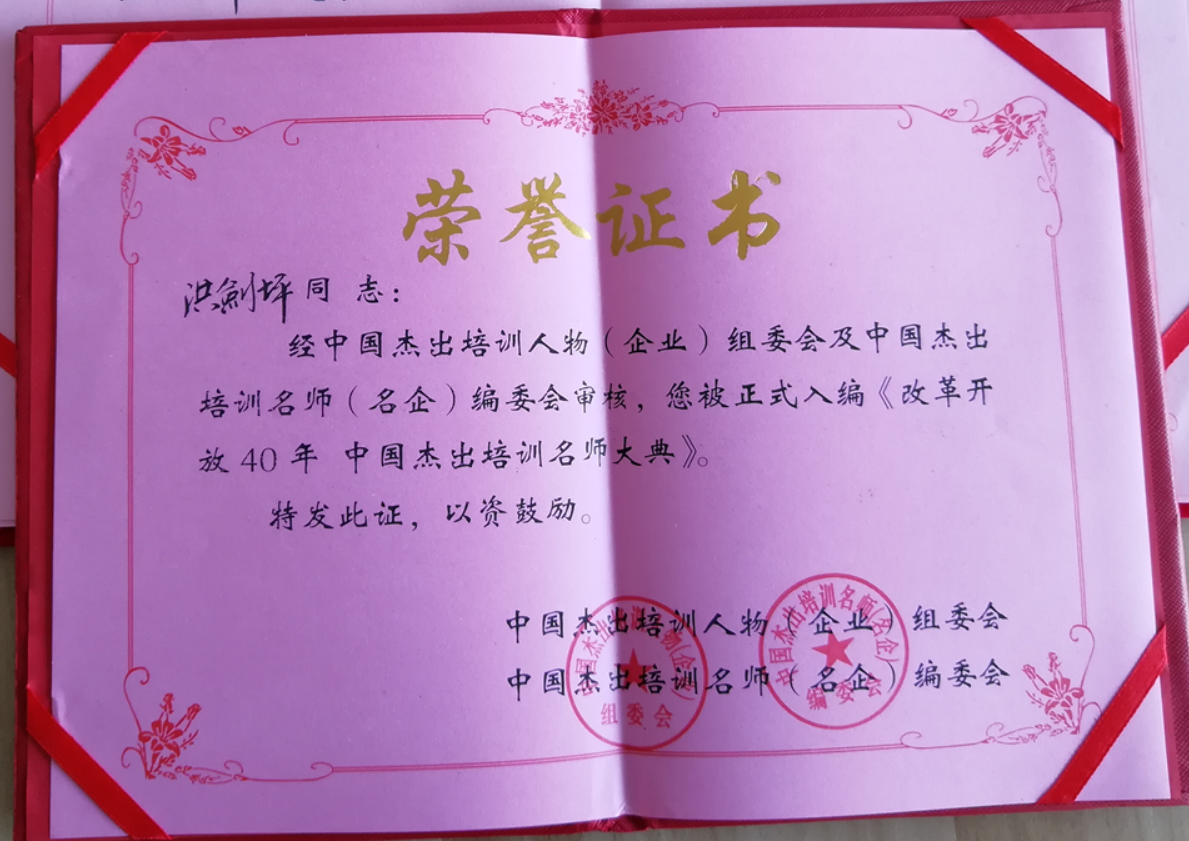 荣誉证书
洪劍坪同志：
经中国杰出培训人物（企业）组委会及中国杰出
培训名师（名企）编委会审核，您被正式入编《改革开
放40年 中国杰出培训名师大典》。
特发此证，以资鼓励。
中国杰出培训人物（企业）组委会
中国杰出培训名师（名企）编委会
中国杰出培训人物(企业)
组委会
中国杰出培训名师(名企)
编委会